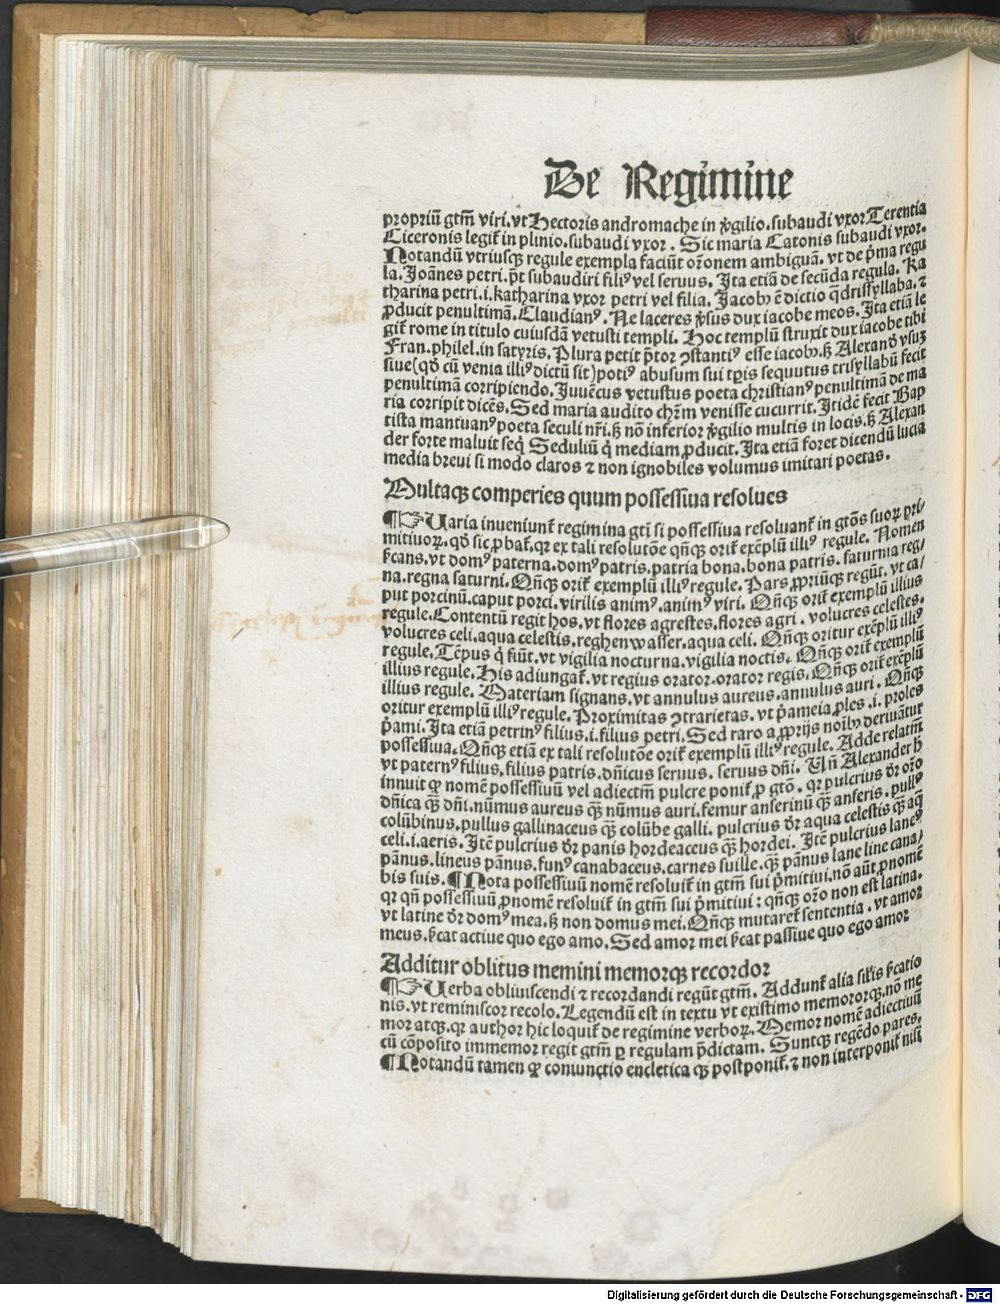 De Regimine
propriū gtm̄ viri.vt Hectoris andromache in v̄gilio.subaudi vxor Terentia
Ciceronis legit̄ in plinio.subaudi vxor. Sic maria Catonis subaudi vxor.
Notandū vtriusqꝫ regule exempla faciūt orōnem ambiguā. vt de p̄ma regu
la. Joānes petri.pōt subaudiri filiꝰ vel seruus. Ita etiā de secūda regula. Ka
tharina petri.i.katharina vxor petri vel filia. Jacobꝰ ē dictio q̄drissyllaba.⁊
ꝓducit penultimā.Claudianꝰ. Ne laceres v̄sus dux iacobe meos. Ita etiā le
git̄ rome in titulo cuiusdā vetusti templi. Hoc templū struxit dux iacobe tibi
Fran.philel.in satyris. Plura petit p̄tor ꝯstantiꝰ esse iacobꝰ.sꝫ Alexander vsus
siue(qd̄ cū venia illiꝰ dictū sit)potiꝰ abusum sui tp̄is sequutus trisyllabū fecit
penultimā corripiendo. Juuēcus vetustus poeta christianꝰ penultimā de ma
ria corripit dicēs. Sed maria audito chr̄m venisse cucurrit. Itidē fecit Bap
tista mantuanꝰ poeta seculi nr̄i.sꝫ nō inferior v̄gilio multis in locis.sꝫ Alexan
der forte maluit seq̄ Seduliū q̄ mediam ꝓducit. Ita etiā foret dicendū lucia
media breui si modo claros ⁊ non ignobiles volumus imitari poetas.
Multaqꝫ comperies quum possessiua resolues
¶☞Uaria inueniunt̄ regimina gtī si possessiua resoluant̄ in gtōs suoꝝ pri/
mitiuoꝝ. qd̄ sic ꝓbat̄.qꝛ ex tali resolutōe qn̄qꝫ orit̄ exēplū illiꝰ regule. Nomen
sc̄ans.vt domꝰ paterna.domꝰ patris.patria bona.bona patris. saturnia reg/
na.regna saturni. Qn̄qꝫ orit̄ exemplū illiꝰ regule. Pars ꝓpriūqꝫ regūt. vt ca/
put porcinū.caput porci.virilis animꝰ.animꝰ viri. Qn̄qꝫ orit̄ exemplū illius
regule.Contentū regit hos.vt flores agrestes.flores agri. volucres celestes.
volucres celi.aqua celestis.reghenwasser.aqua celi. Qn̄qꝫ oritur exēplū illiꝰ
regule. Tēpus q̄ fiūt.vt vigilia nocturna.vigilia noctis. Qn̄qꝫ orit̄ exemplū
illius regule. His adiungat̄.vt regius orator.orator regis. Qn̄qꝫ orit̄ exēplū
illius regule. Materiam signans.vt annulus aureus.annulus auri. Qn̄qꝫ
oritur exemplū illiꝰ regule. Proximitas ꝯtrarietas. vt p̄ameia ꝓles.i. proles
p̄ami. Ita etiā petrinꝰ filius.i.filius petri. Sed raro a ꝓprijs noībꝰ deriuātur
possessiua. Qn̄qꝫ etiā ex tali resolutōe orit̄ exemplū illiꝰ regule. Adde relatm̄
vt paternꝰ filius.filius patris.dn̄icus seruus. seruus dn̄i. Un̄ Alexander h̄
innuit qꝫ nomē possessiuū vel adiectm̄ pulcre ponit̄ ꝓ gtō. qꝛ pulcrius dr̄ orō
dn̄ica qꝫ̄ dn̄i.nūmus aureus qꝫ̄ nūmus auri.femur anserinū qꝫ̄ anseris.pullꝰ
colūbinus.pullus gallinaceus qꝫ̄ colūbe galli. pulcrius dr̄ aqua celestis qꝫ̄ aq̄
celi.i.aeris. Itē pulcrius dr̄ panis hordeaceus qꝫ̄ hordei. Itē pulcrius laneꝰ
pānus.lineus pānus.funꝰ canabaceus.carnes suille.qꝫ̄ pānus lane line cana/
bis suis. ¶Nota possessiuū nomē resoluit̄ in gtm̄ sui p̄mitiui.nō aūt ꝓnomē
qꝛ qn̄ possessiuū ꝓnomē resoluit̄ in gtm̄ sui p̄mitiui: qn̄qꝫ orō non est latina.
vt latine dr̄ domꝰ mea.sꝫ non domus mei. Qn̄qꝫ mutaret̄ sententia. vt amor
meus.sc̄at actiue quo ego amo. Sed amor mei sc̄at passiue quo ego amor
Additur oblitus memini memorqꝫ recordor
¶☞Uerba obliuiscendi ⁊ recordandi regūt gtm̄. Addunt̄ alia sil'is sc̄atio
nis.vt reminiscor recolo. Legendū est in textu vt existimo memororqꝫ.nō me
mor atqꝫ.qꝛ author hic loquit̄ de regimine verboꝝ. Memor nomē adiectiuū
cū cōposito immemor regit gtm̄ ꝑ regulam p̄dictam. Suntqꝫ regēdo pares.
¶Notandū tamen qꝫ coniunctio encletica qꝫ postponit̄.⁊ non interponit̄ nisi
Digitalisierung gefördert durch die Deutsche Forschungsgemeinschaft - DFG